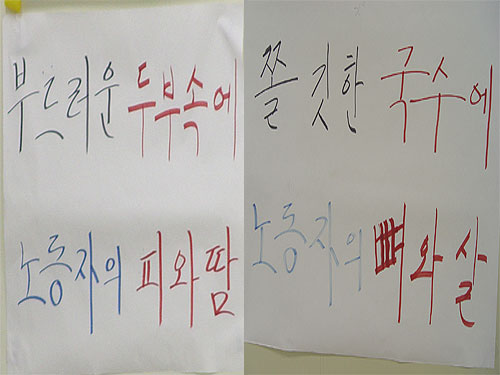 부드러운 두부속에
노동자의 피와 땀
쫄깃한 국수에
노동자의 뼈와 살